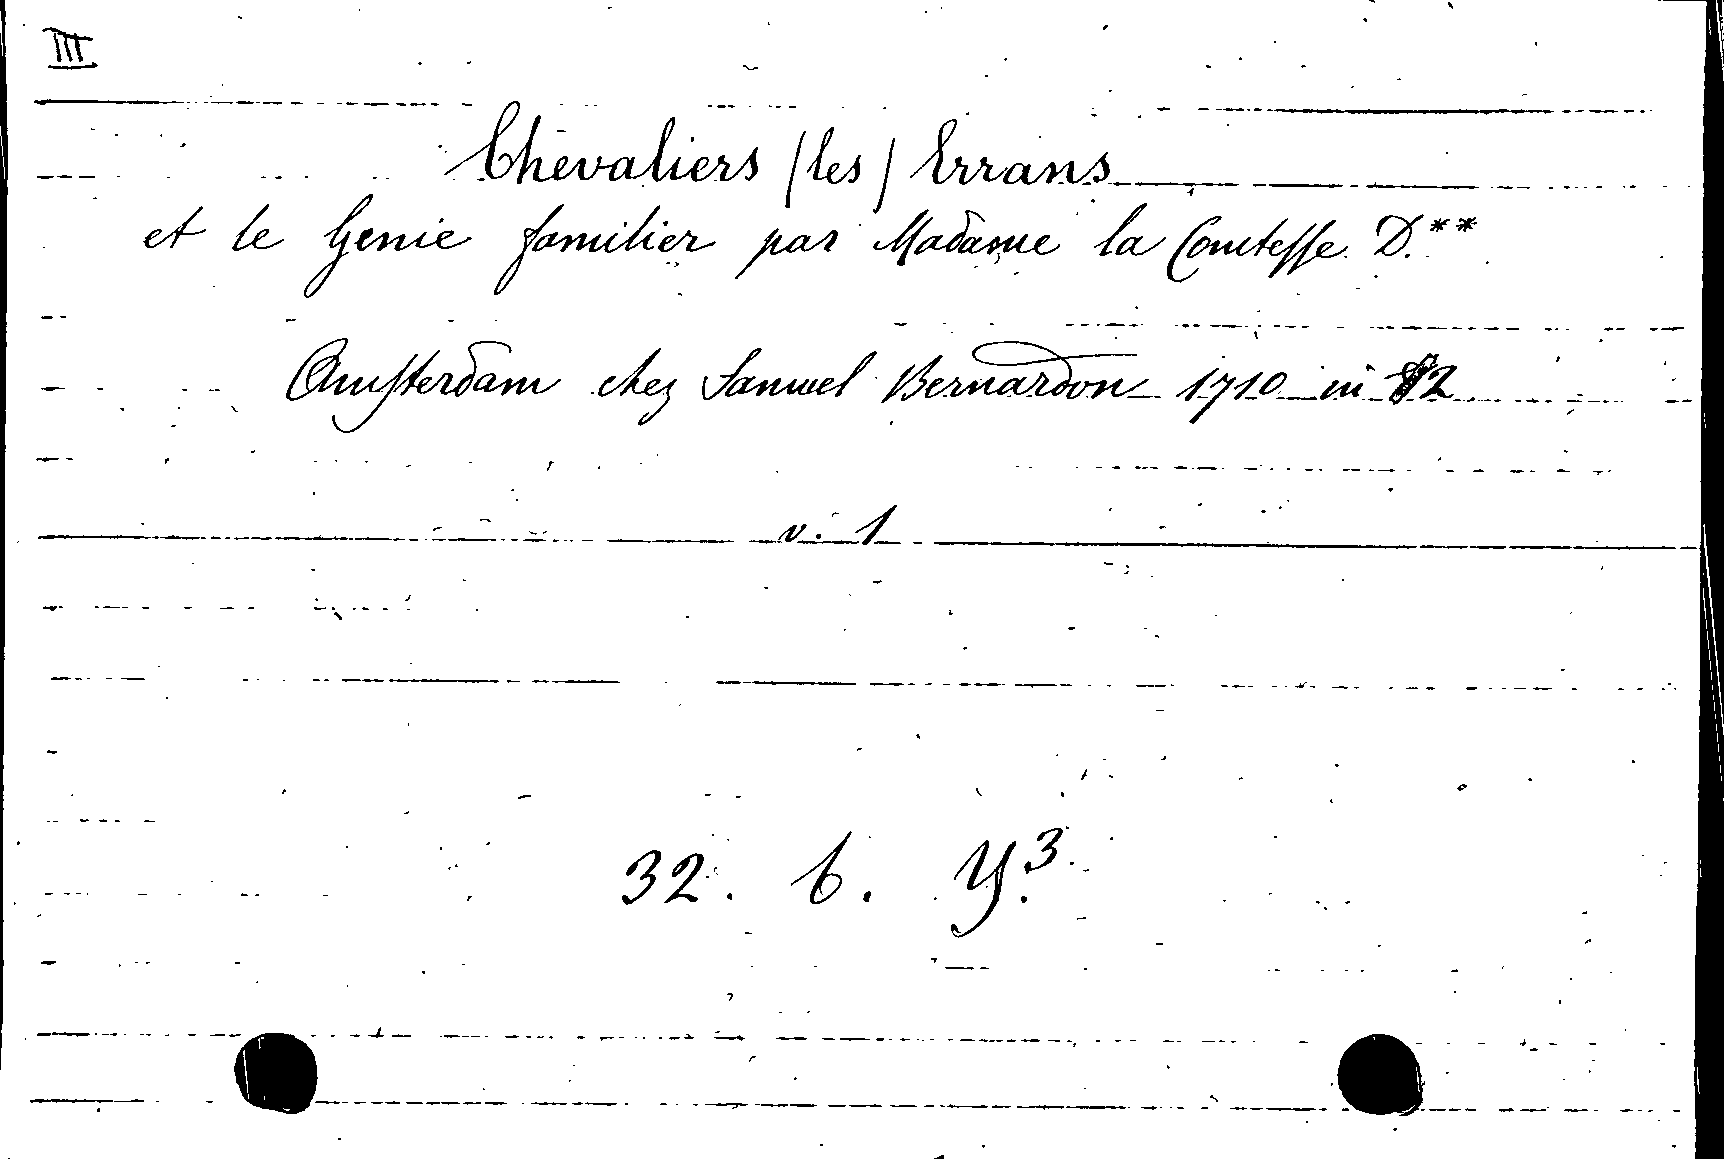 III
Chevaliers (les) Errans
et le Genie familier par Madame la Comtesse D.**
Amsterdam chez Samuel Bernardon 1710 in 12
v. 1
32. b. Y.3